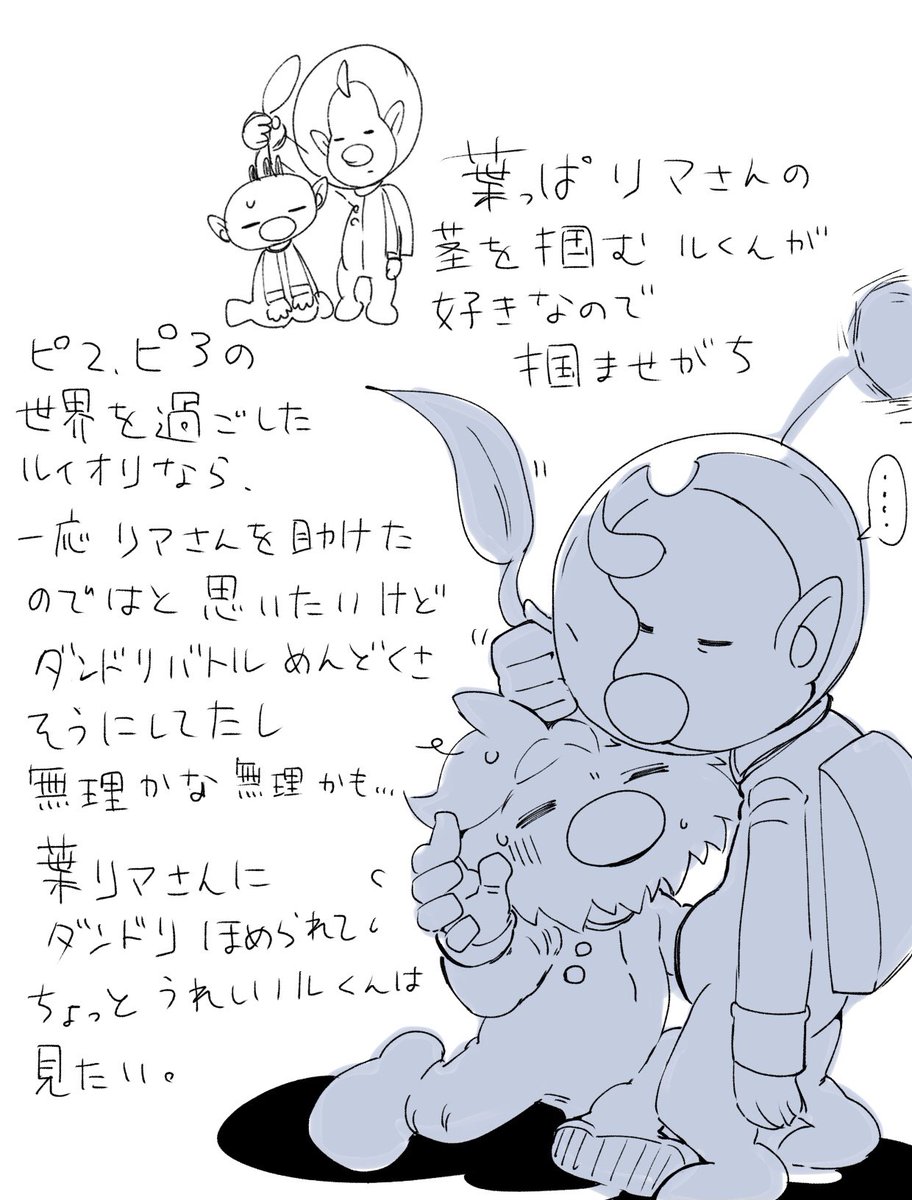 葉っぱリマさんの
茎を掴むルくんが
好きなので
掴ませがち
ピ2、ピ3の
世界を過ごした
ルイオリなら、
一応リマさんを助けた
のではと思いたいけど
ダンドリバトルめんどくさ
そうにしてたし
無理かな無理かも…
葉リマさんに
ダンドリほめられて
ちょっとうれしいルくんは
見たい。